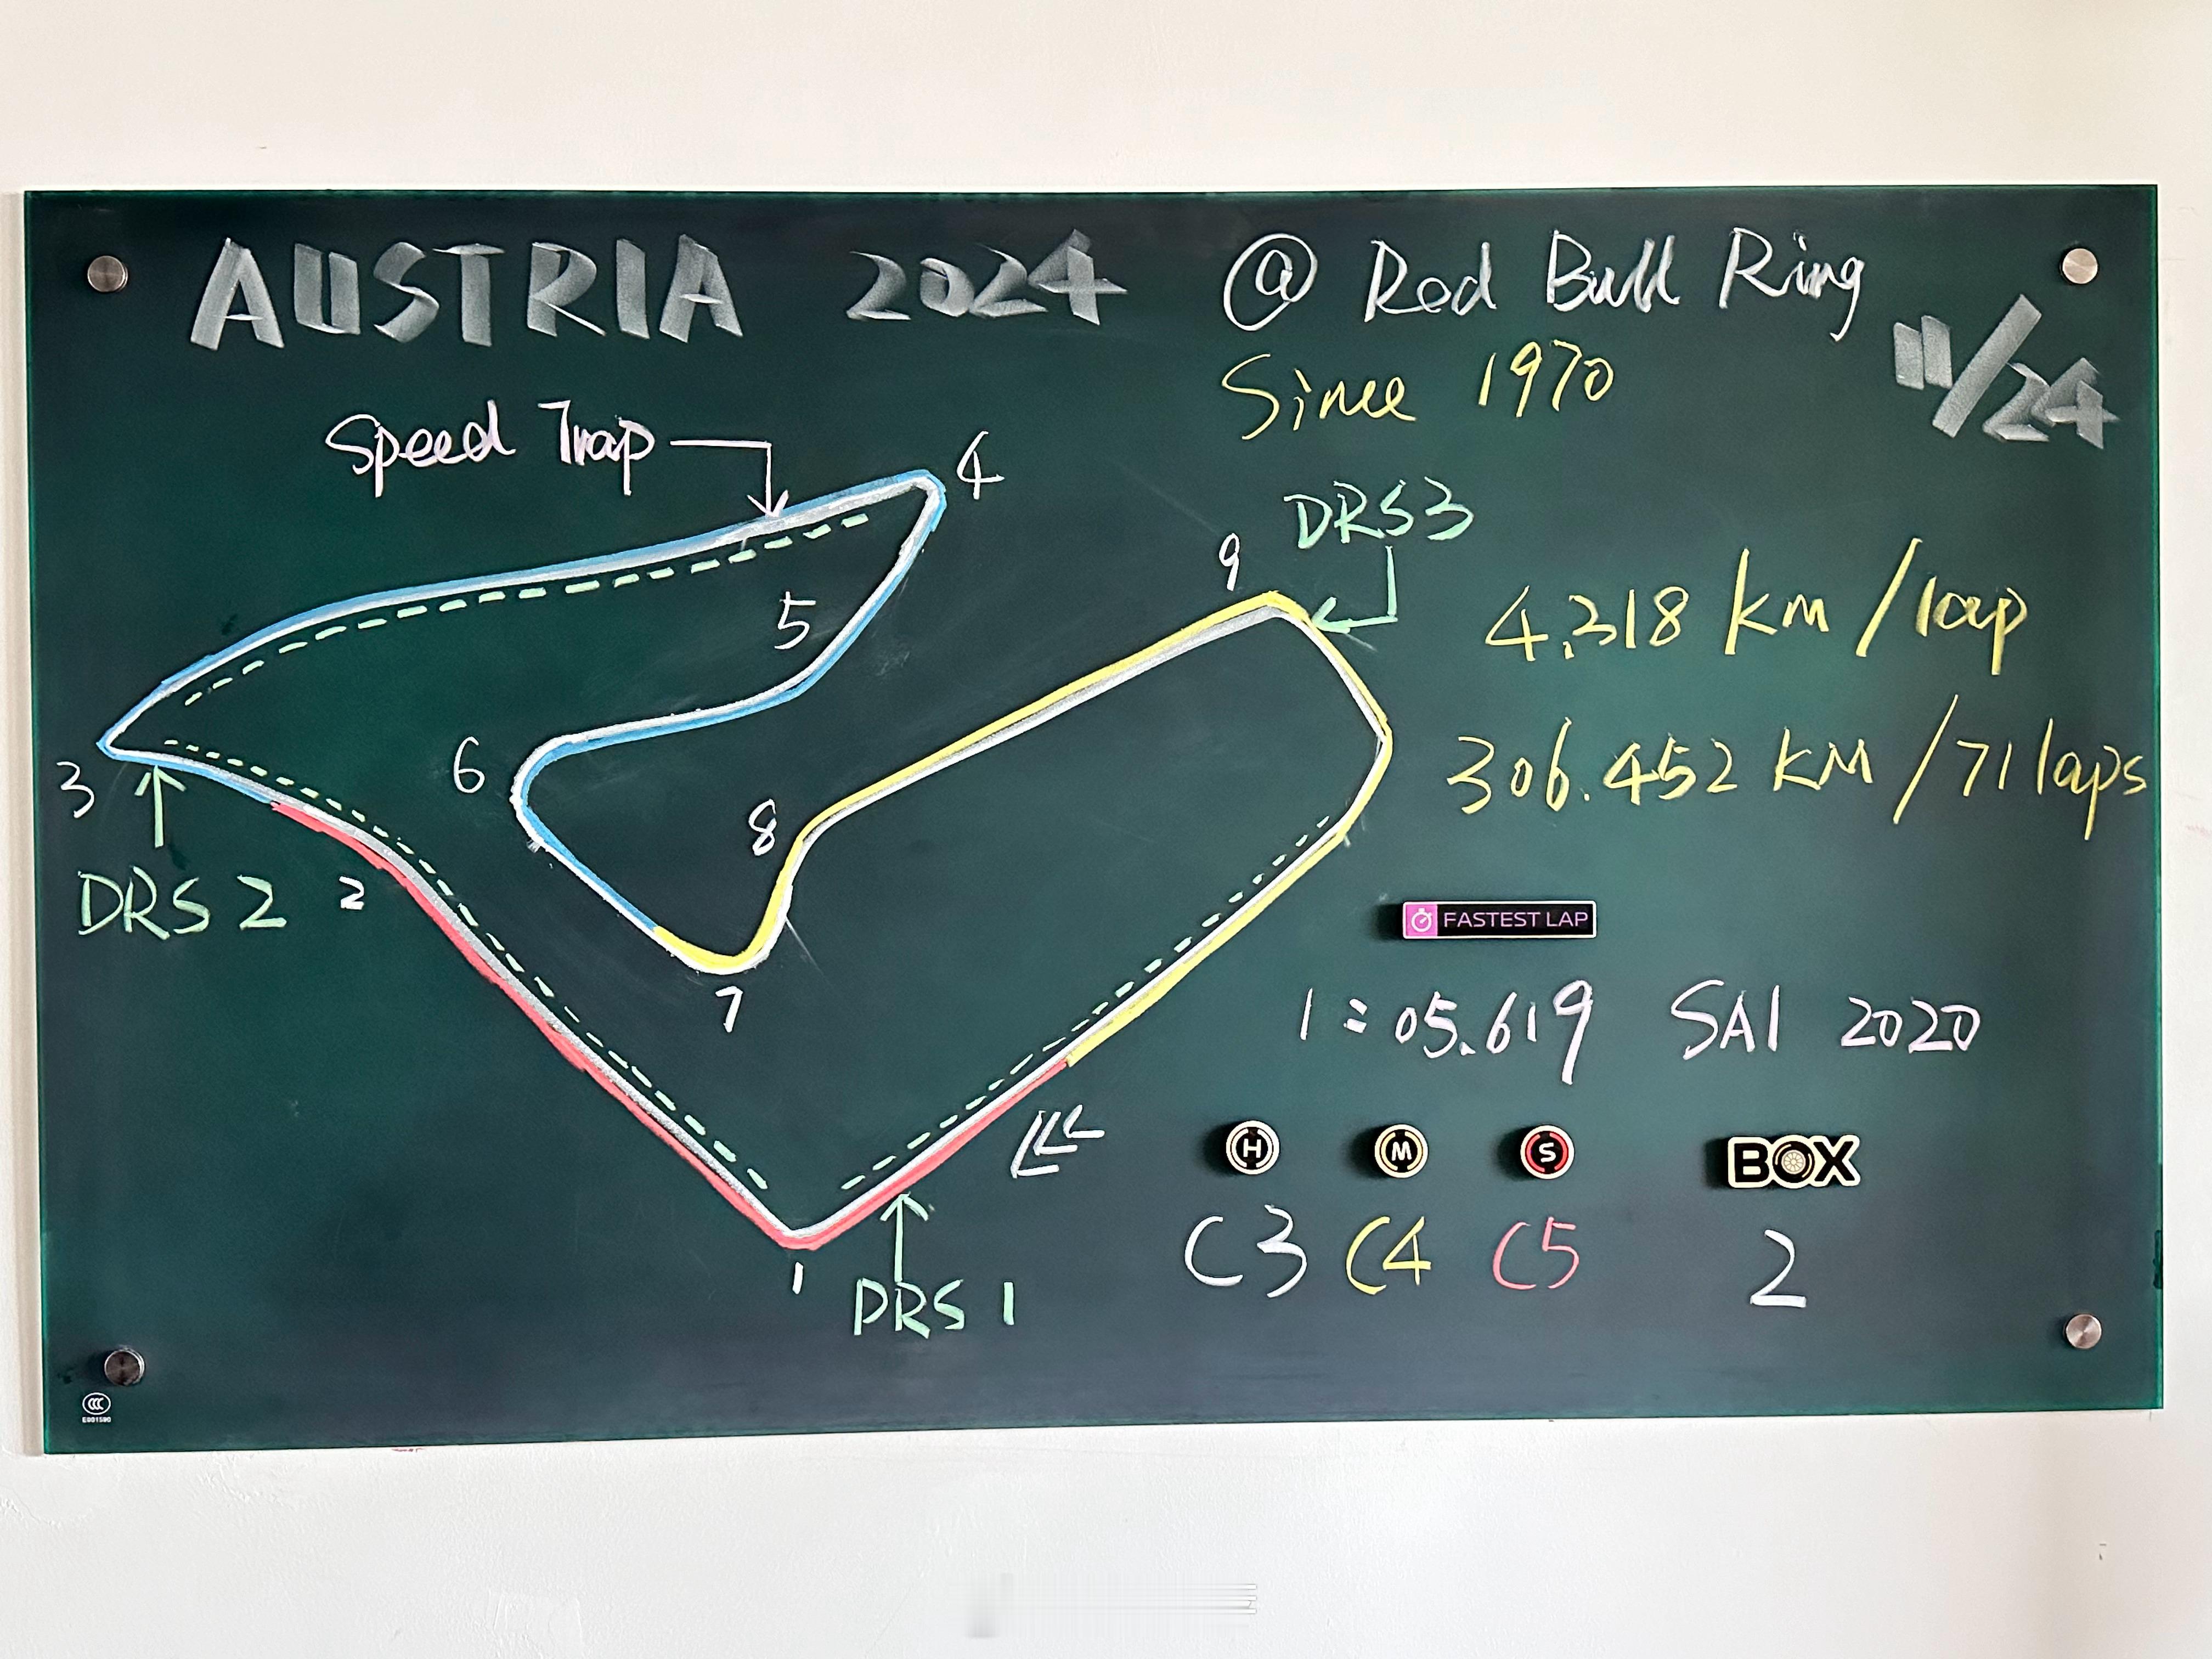 AUSTRIA 2024 @ Red Bull Ring
Since 1970
11/24
Speed Trap
4
DRS3
9
4.318 KM/lap
5
6
3
8
306.452 KM/71 laps
DRS 2
2
FASTEST LAP
7
1:05.619 SAI 2020
H M S BOX
C3 C4 C5 2
1
DRS 1
CCC
E001590